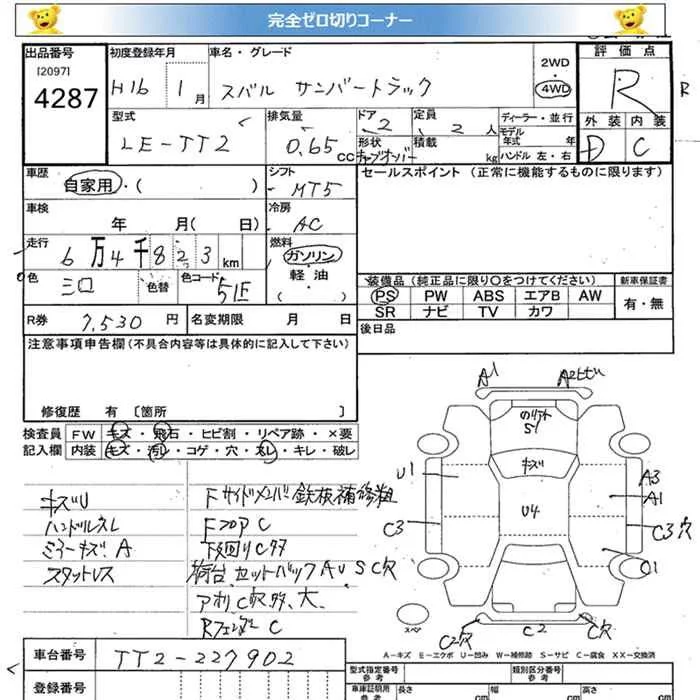 完全ゼロ切りコーナー
出品番号 初度登録年月 車名・グレード 2WD 4WD 評価点
[2097]
4287 H16 1月 スバル サンバートラック R R
型式 排気量 ドア 定員 ディーラー・並行 外装 内装
LE-TT2 0.65 cc 2 2人 モデル年式 年 D C
形状 積載 kg ハンドル 左・右
車歴 シフト セールスポイント (正常に機能するものに限ります)
自家用・( ) MT5
車検 冷房
年 月( 日) AC
走行 燃料
6万4千823km ガソリン
色 色替 色コード 軽・油
シロ 51E ・( )
装備品 (純正品に限り○をつけてください) 新車保証書
PS PW ABS エアB AW 有・無
SR ナビ TV カワ
R券 7,530円 名変期限 月 日 後日品
注意事項申告欄 (不具合内容等は具体的に記入して下さい)
修復歴 有 [箇所 ]
検査員 FW キズ・飛石・ヒビ割・リペア跡・×要
記入欄 内装 キズ・汚レ・コゲ・穴・スレ・キレ・破レ
キズU Fサイドメンバー鉄板補修粗
ハンドルスレ FフロアC
ミラーキズA 下回りCタタ
スタットレス 荷台 セットバックAUSC穴
アオリC穴タタ、大、
RフェンダーC
A1 A2
S1
キズ
U1 U4 A3
A1
C3 C3穴
C1
スペア
C2穴 C2 C穴
A-キズ E-エクボ U-凹み W-補修跡 S-サビ C-腐食 XX-交換済
車台番号 TT2-227902
登録番号
型式指定番号 参考 類別区分番号 参考
車庫証明用 参考 長さ cm 幅 cm 高さ cm